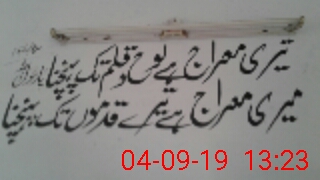 تیری معراج ہے لوح و قلم تک پہنچنا
میری معراج ہے تیرے قدموں تک پہنچنا
04-09-19 13:23